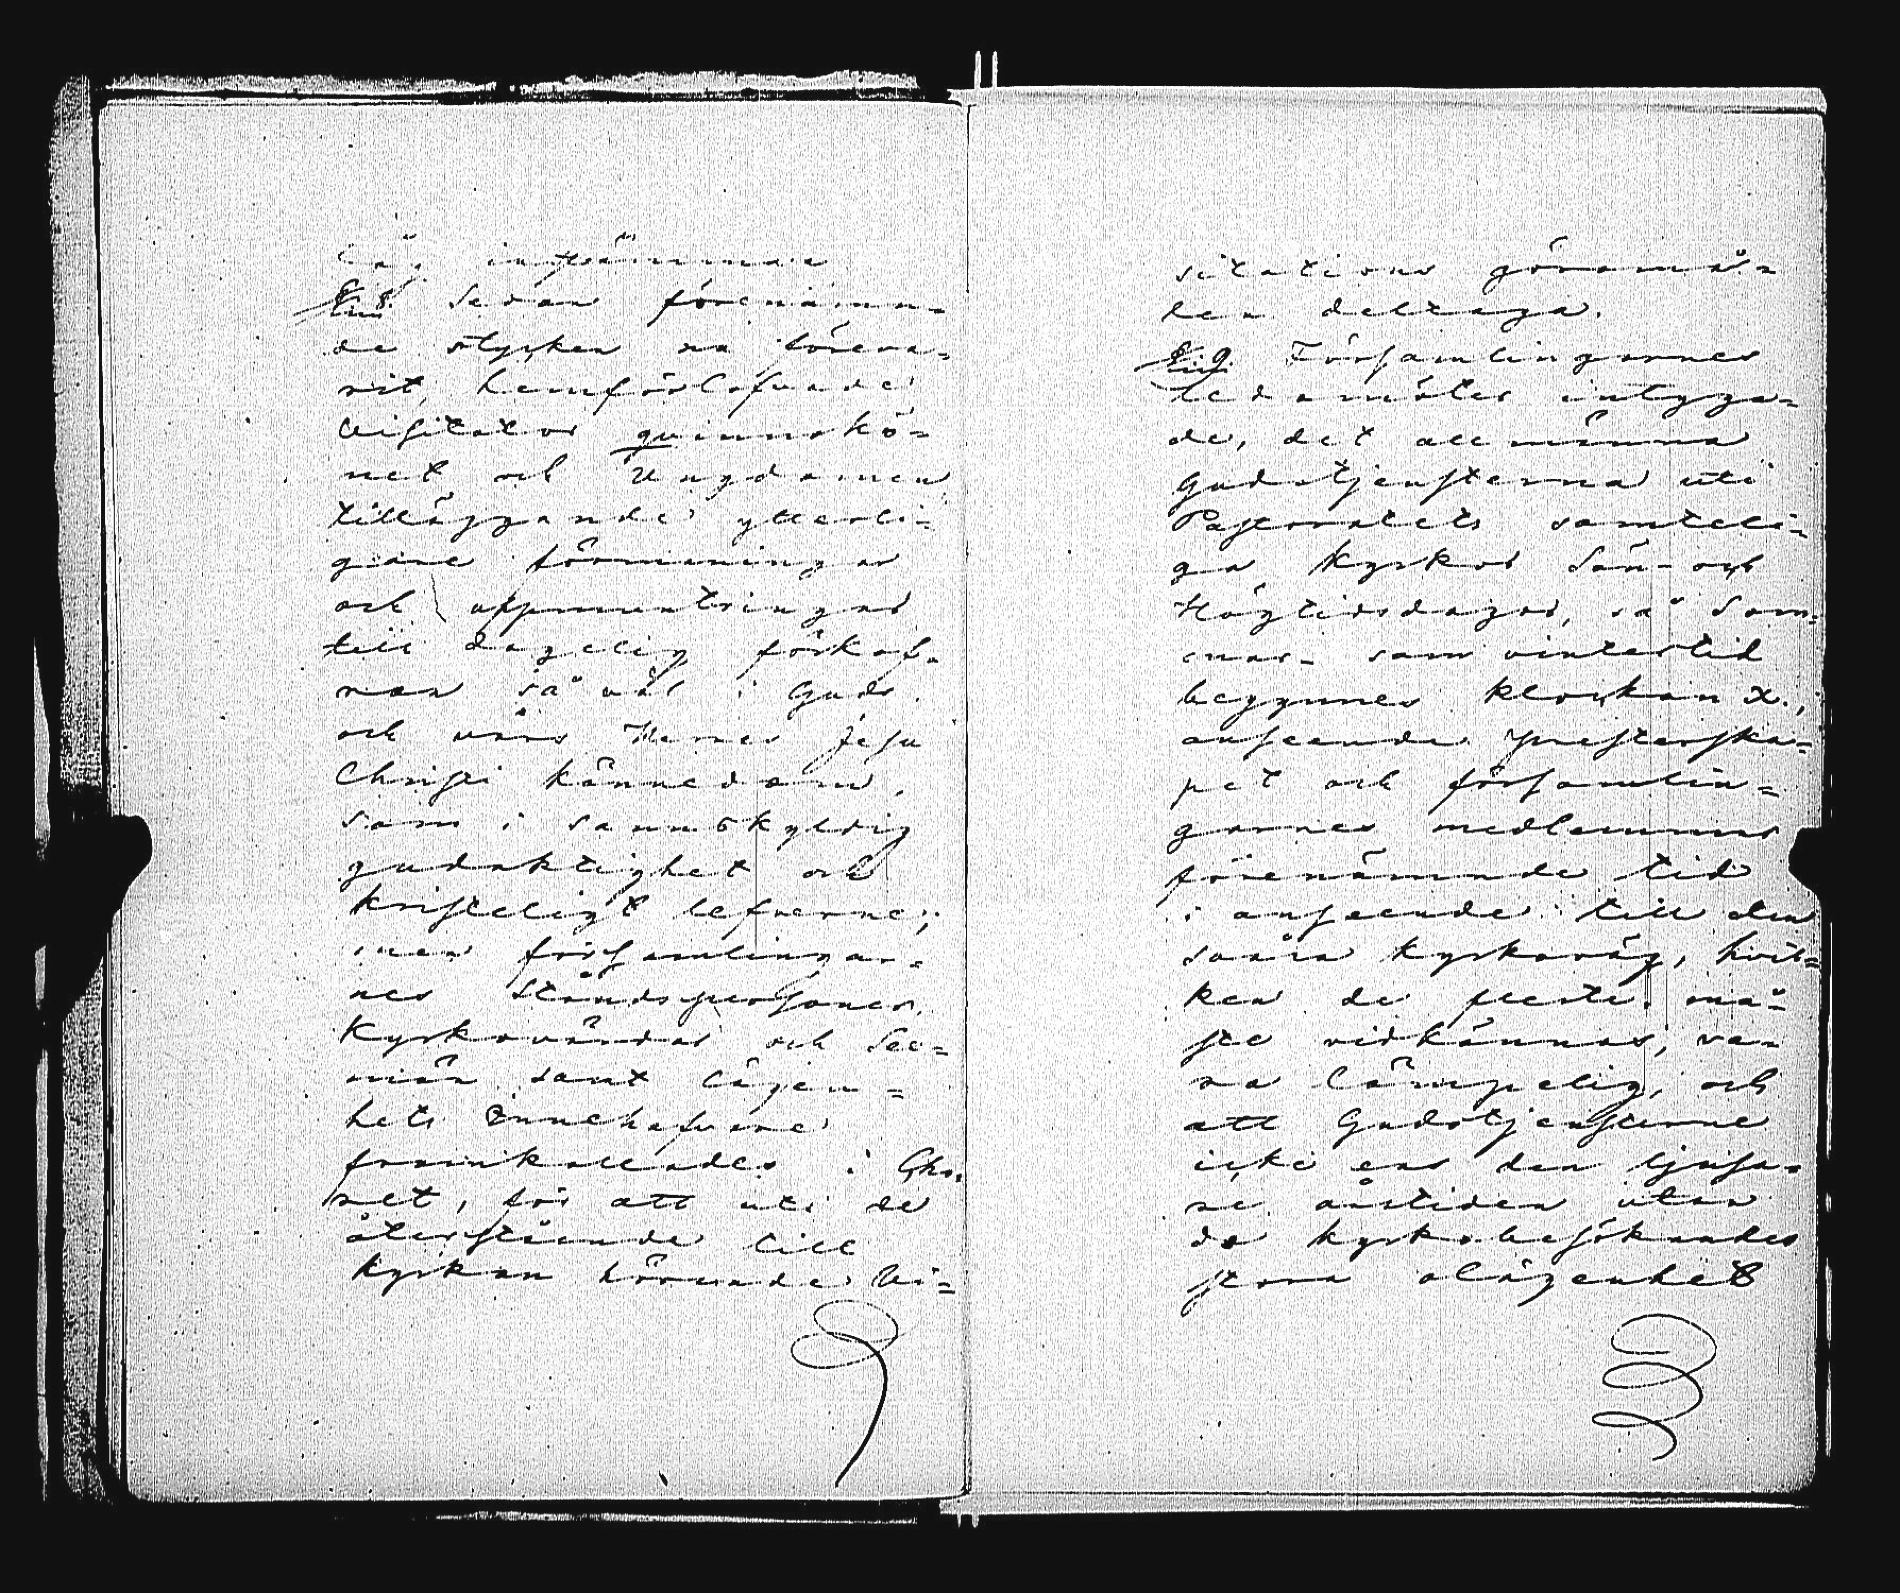 inträmma
§. 8. Sedan förenämn=
de stycken na föreva=
rit, hemförlofvade
Visitator quinnskö=
net och Ungdomen
tilläggande ytterli=
gare förmaningar
och uppmuntringar
till daglig förkof=
ran så väl i Guds
och vårs Herres Jesu
Christi kännedom,
som i sannskyldig
gudaktighet och
kristeligt lefverne;
men församlingar=
nes Ståndspersoner,
Kyrkovärdar och Sex=
män samt lägen=
hets Innehafvare
framkallades i Cho=
ret, för att uti de
återstående till
kyrkan hörande Vi=
sitations göromå=
len deltaga.
§. 9. Församlingarnes
ledamöter intyga=
de, det allmänna
Gudstjensterna uti
Pastoratets samteli=
ga kyrkor Sön- och
Högtidsdagar, så Som=
mar- som vintertid
begynnes klockan X.,
anseende Presterska=
pet och församlin=
garnes medlemmar
förenämnde tid
i anseende till den
svåra kyrkoväg, hvil=
ken de fleste må=
ste vidkännas, va=
ra lämpelig, och
att Gudstjensterne
icke ens den ljusa=
re årstiden utan
de kyrkobesökandes
stora olägenhet